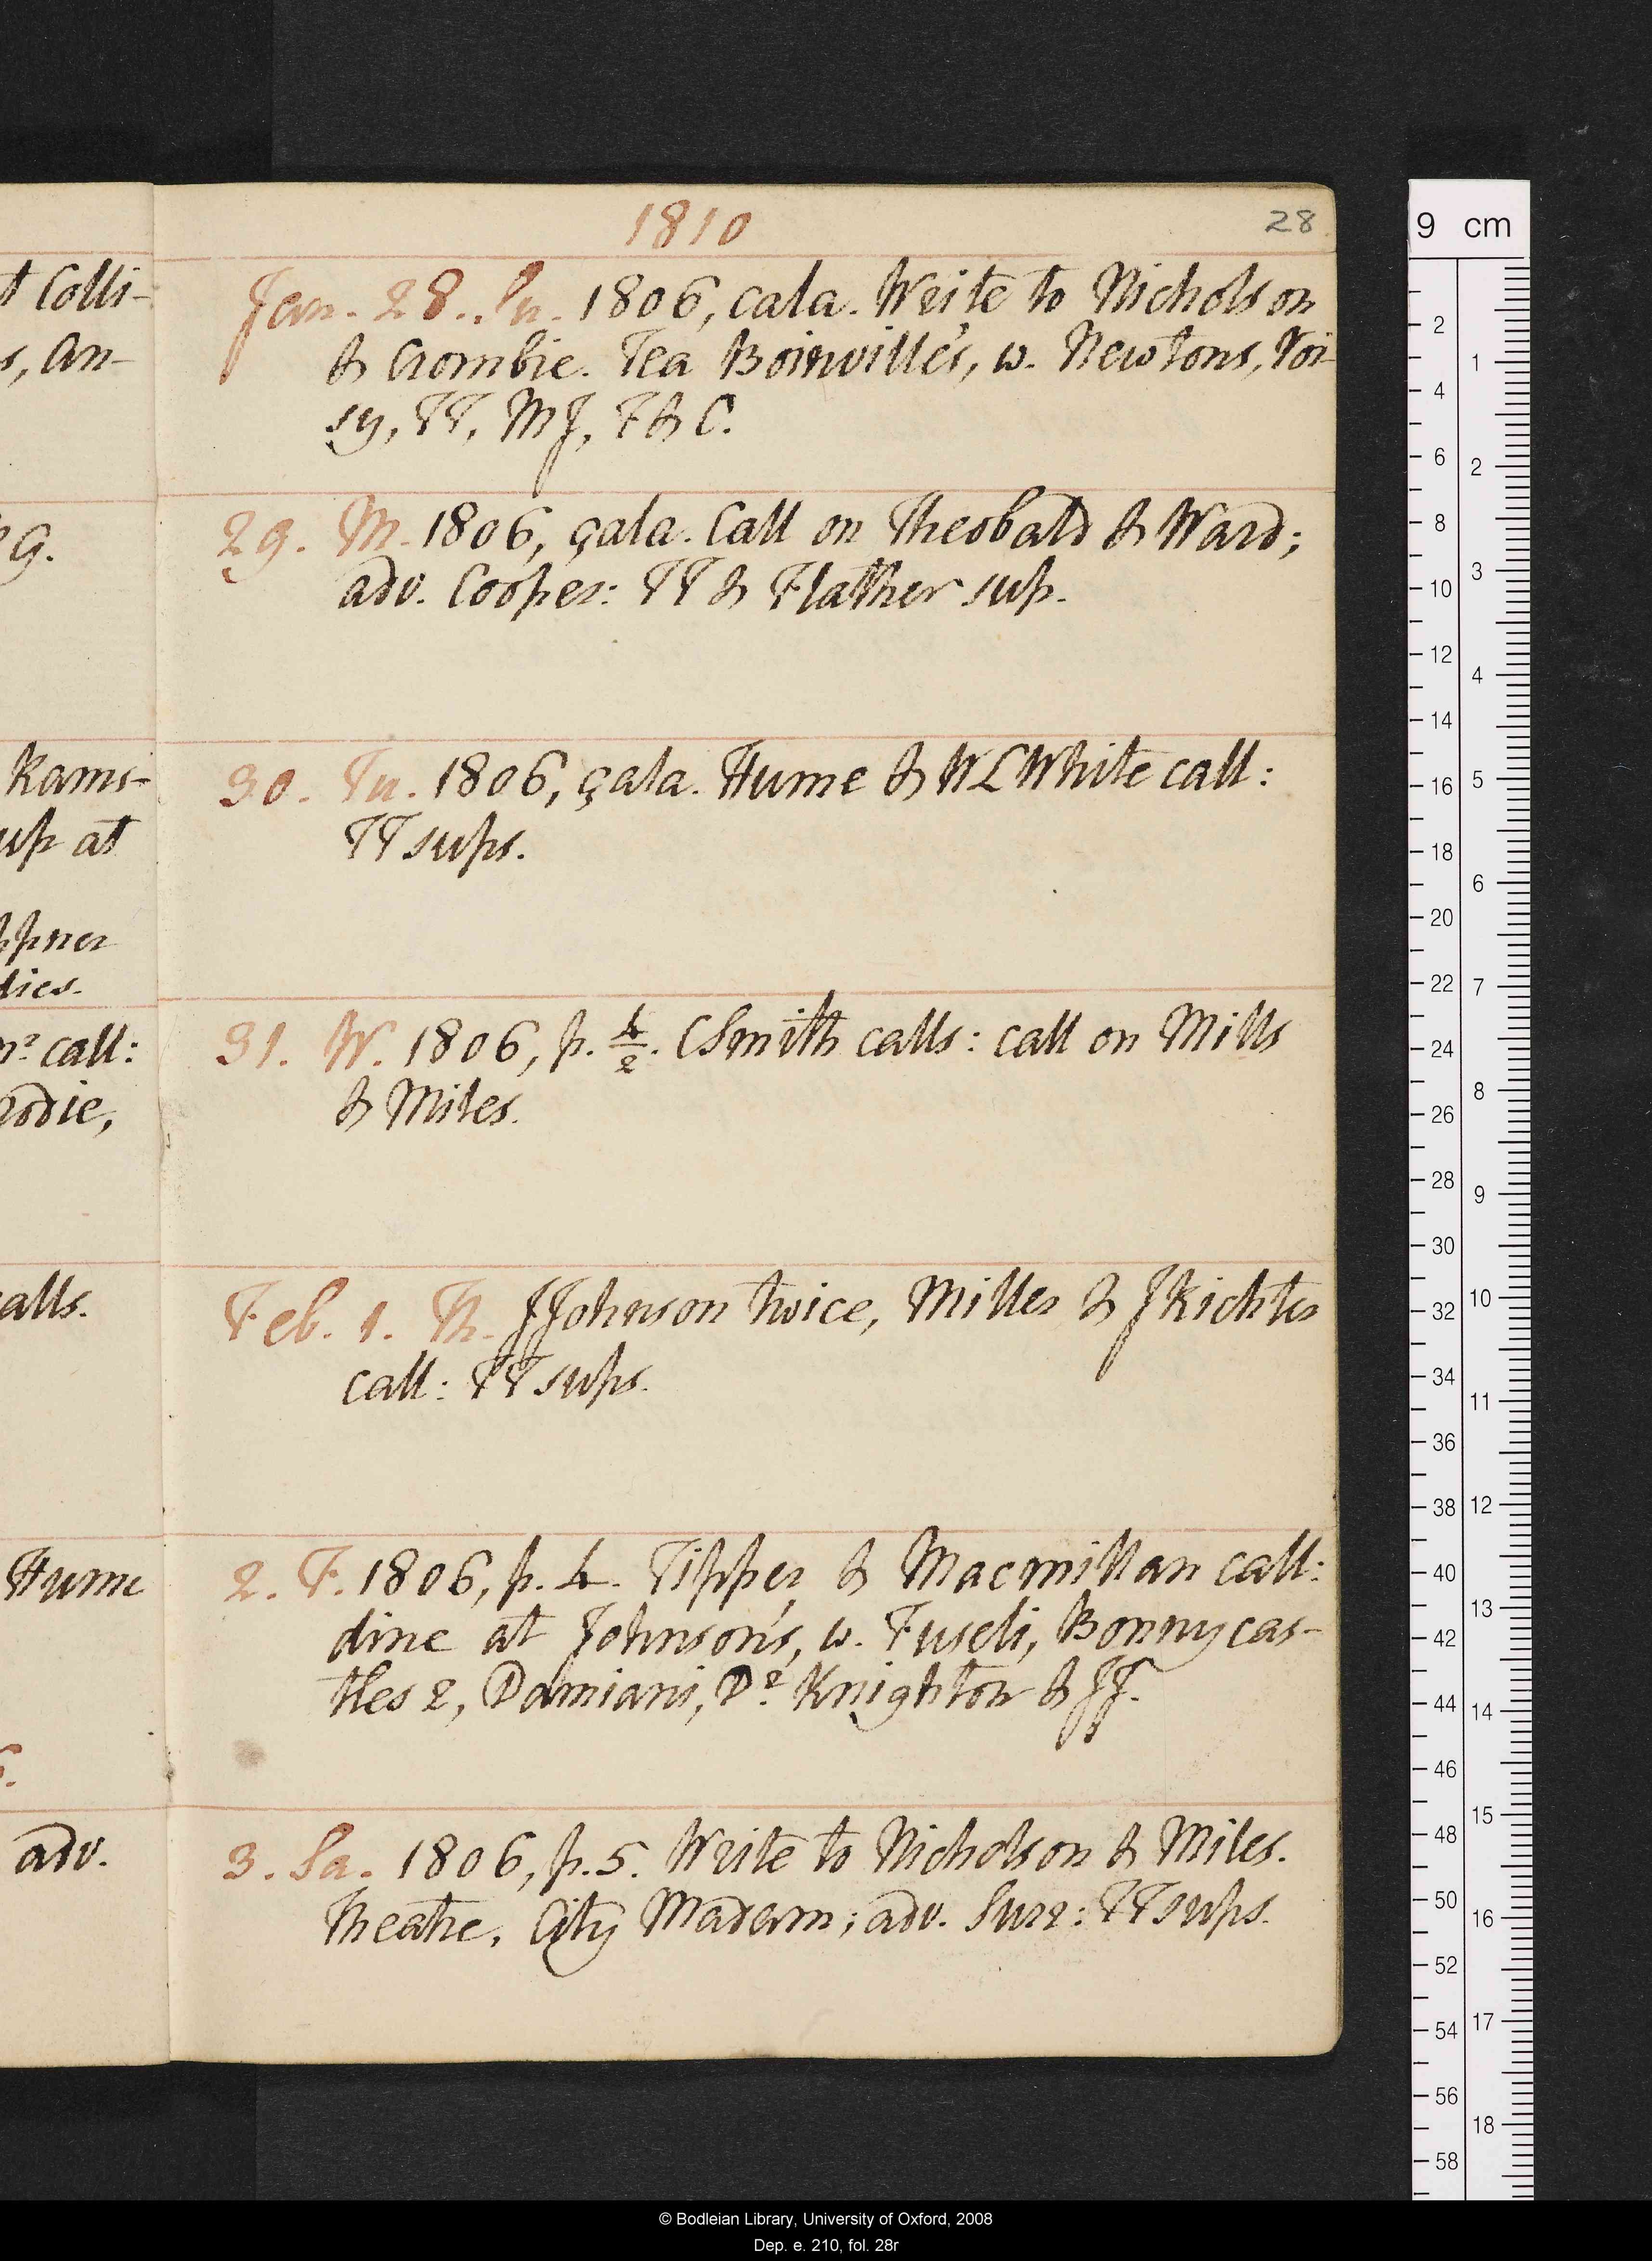 1810
28
t Colli-
s, An-
Jan. 28. Su. 1806, cala. Write to Nicholson
& Crombie. Tea Boinville's, w. Newtons, Voi-
sy, TT, MJ, F & C.
g.
29. M. 1806, çala. Call on Theobald & Ward;
adv. Cooper: TT & Flather sup.
Rams-
up at
ppner
dies.
30. Tu. 1806, çala. Hume & WLWhite call:
TT sups.
nr call:
rodie,
31. W. 1806, p. 4/2. CSmith calls: call on Mills
& Miles.
calls.
Feb. 1. Th. JJohnson twice, Miller & JRichter
call: TT sups.
Hume
2. F. 1806, p. 4. Tipper & Macmillan call:
dine at Johnson's, w. Fuseli, Bonnycas-
tles 2, Damiani, Dr Knighton & JF.
adv.
3. Sa. 1806, p. 5. Write to Nicholson & Miles.
Theatre, City Madam; adv. Surr: TT sups.
9 cm
2
4
6
8
10
12
14
16
18
20
22
24
26
28
30
32
34
36
38
40
42
44
46
48
50
52
54
56
58
1
2
3
4
5
6
7
8
9
10
11
12
13
14
15
16
17
18
© Bodleian Library, University of Oxford, 2008
Dep. e. 210, fol. 28r